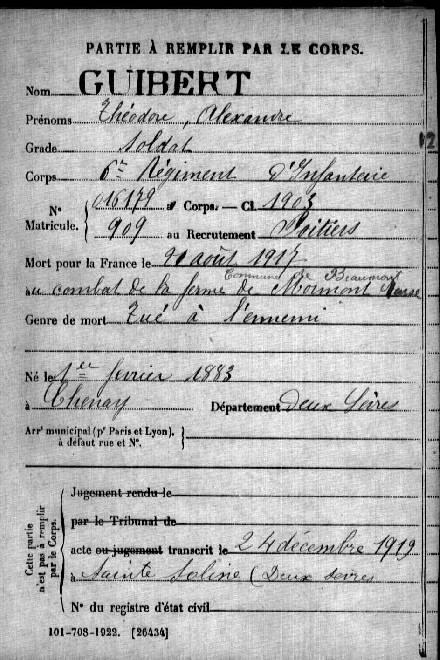 PARTIE À REMPLIR PAR LE CORPS.
Nom GUIBERT
Prénoms Théodore, Alexandre
Grade Soldat
Corps 6e Régiment d'Infanterie
N° Matricule. { 016179 au Corps. — Cl. 1903
909 au Recrutement Poitiers
Mort pour la France le août 1917
Commune de Beaumont
au combat de la ferme de Mormont Meuse
Genre de mort Tué à l'ennemi
Né le 1er février 1883
à Chenay Département Deux Sèvres
Arrt municipal (pr Paris et Lyon), à défaut rue et N°. }
Cette partie n'est pas à remplir par le Corps.
Jugement rendu le
par le Tribunal de
acte ou jugement transcrit le 24 décembre 1919
à Sainte Soline (Deux Sèvres
N° du registre d'état civil
101-708-1922. [26434]
12